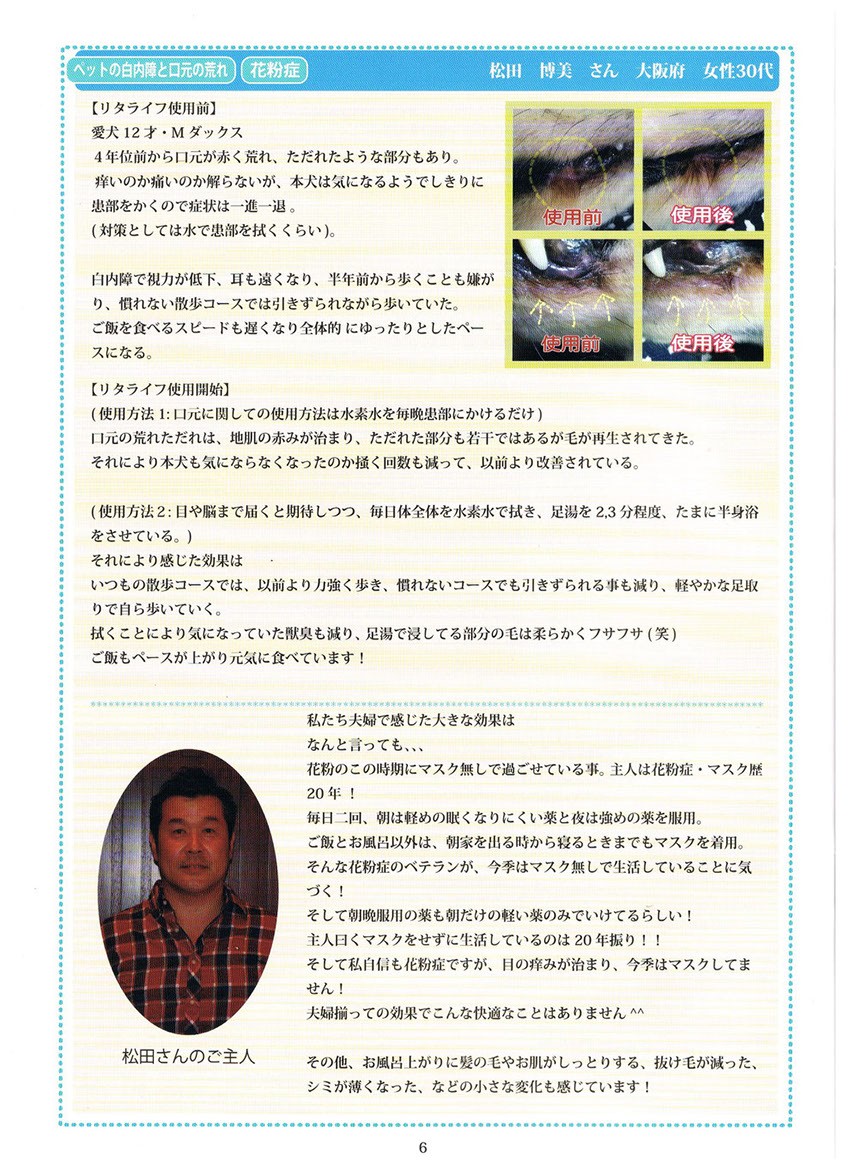 ペットの白内障と口元の荒れ 花粉症 松田 博美 さん 大阪府 女性30代
【リタライフ使用前】
愛犬 12 才・M ダックス
４年位前から口元が赤く荒れ、ただれたような部分もあり。
痒いのか痛いのか解らないが、本犬は気になるようでしきりに
患部をかくので症状は一進一退 。
( 対策としては水で患部を拭くくらい )。
白内障で視力が低下、耳も遠くなり、半年前から歩くことも嫌が
り、慣れない散歩コースでは引きずられながら歩いていた。
ご飯を食べるスピードも遅くなり全体的 にゆったりとしたペー
スになる。
使用前
使用後
使用前
使用後
【リタライフ使用開始】
( 使用方法 1: 口元に関しての使用方法は水素水を毎晩患部にかけるだけ )
口元の荒れただれは、地肌の赤みが治まり、ただれた部分も若干ではあるが毛が再生されてきた。
それにより本犬も気にならなくなったのか掻く回数も減って、以前より改善されている。
( 使用方法２: 目や脳まで届くと期待しつつ、毎日体全体を水素水で拭き、足湯を 2,3 分程度、たまに半身浴
をさせている。)
それにより感じた効果は
いつもの散歩コースでは、以前より力強く歩き、慣れないコースでも引きずられる事も減り、軽やかな足取
りで自ら歩いていく。
拭くことにより気になっていた獣臭も減り、足湯で浸してる部分の毛は柔らかくフサフサ ( 笑 )
ご飯もペースが上がり元気に食べています！
私たち夫婦で感じた大きな効果は
なんと言っても、、、
花粉のこの時期にマスク無しで過ごせている事。主人は花粉症・マスク歴
20 年 ！
毎日二回、朝は軽めの眠くなりにくい薬と夜は強めの薬を服用。
ご飯とお風呂以外は、朝家を出る時から寝るときまでもマスクを着用。
そんな花粉症のベテランが、今季はマスク無しで生活していることに気
づく！
そして朝晩服用の薬も朝だけの軽い薬のみでいけてるらしい！
主人曰くマスクをせずに生活しているのは 20 年振り！！
そして私自信も花粉症ですが、目の痒みが治まり、今季はマスクしてま
せん！
夫婦揃っての効果でこんな快適なことはありません ^^
松田さんのご主人
その他、お風呂上がりに髪の毛やお肌がしっとりする、抜け毛が減った、
シミが薄くなった、などの小さな変化も感じています！
6